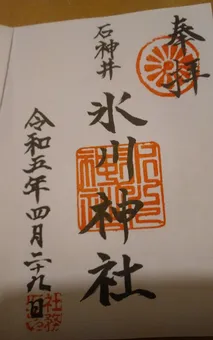 奉拝
石神井
氷川神社
令和五年四月二十九日
社務